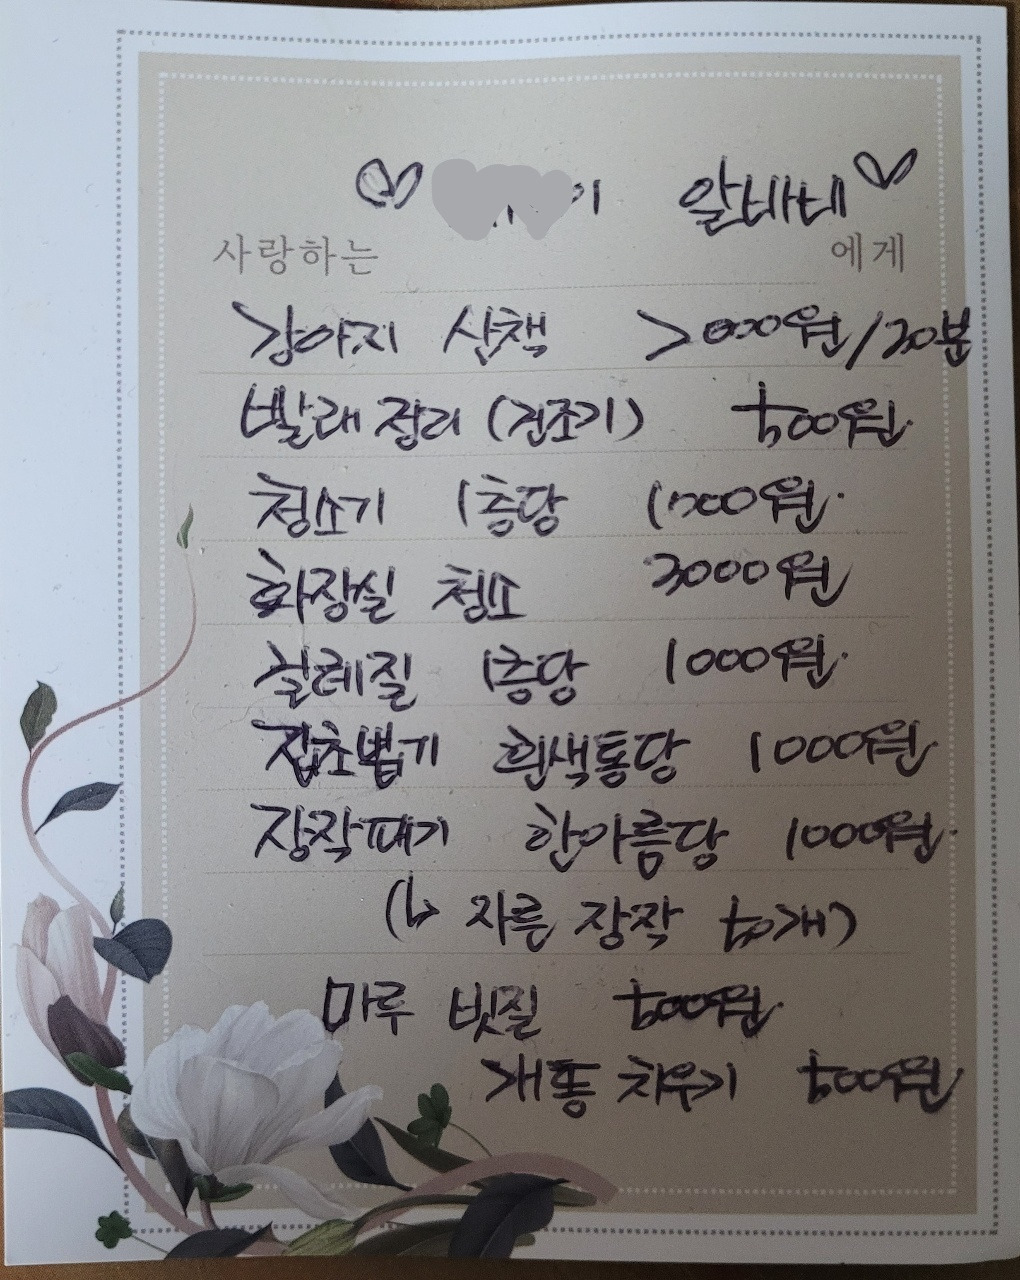 이 알바비
사랑하는 에게
강아지 산책 2000원/30분
빨래 정리 (건조기) 500원.
청소기 1층당 1000원.
화장실 청소 3000원
걸레질 1층당 1000원.
잡초뽑기 흰색통당 1000원
장작패기 한아름당 1000원.
(↳ 자른 장작 50개)
마루 빗질 500원.
개똥 치우기 500원